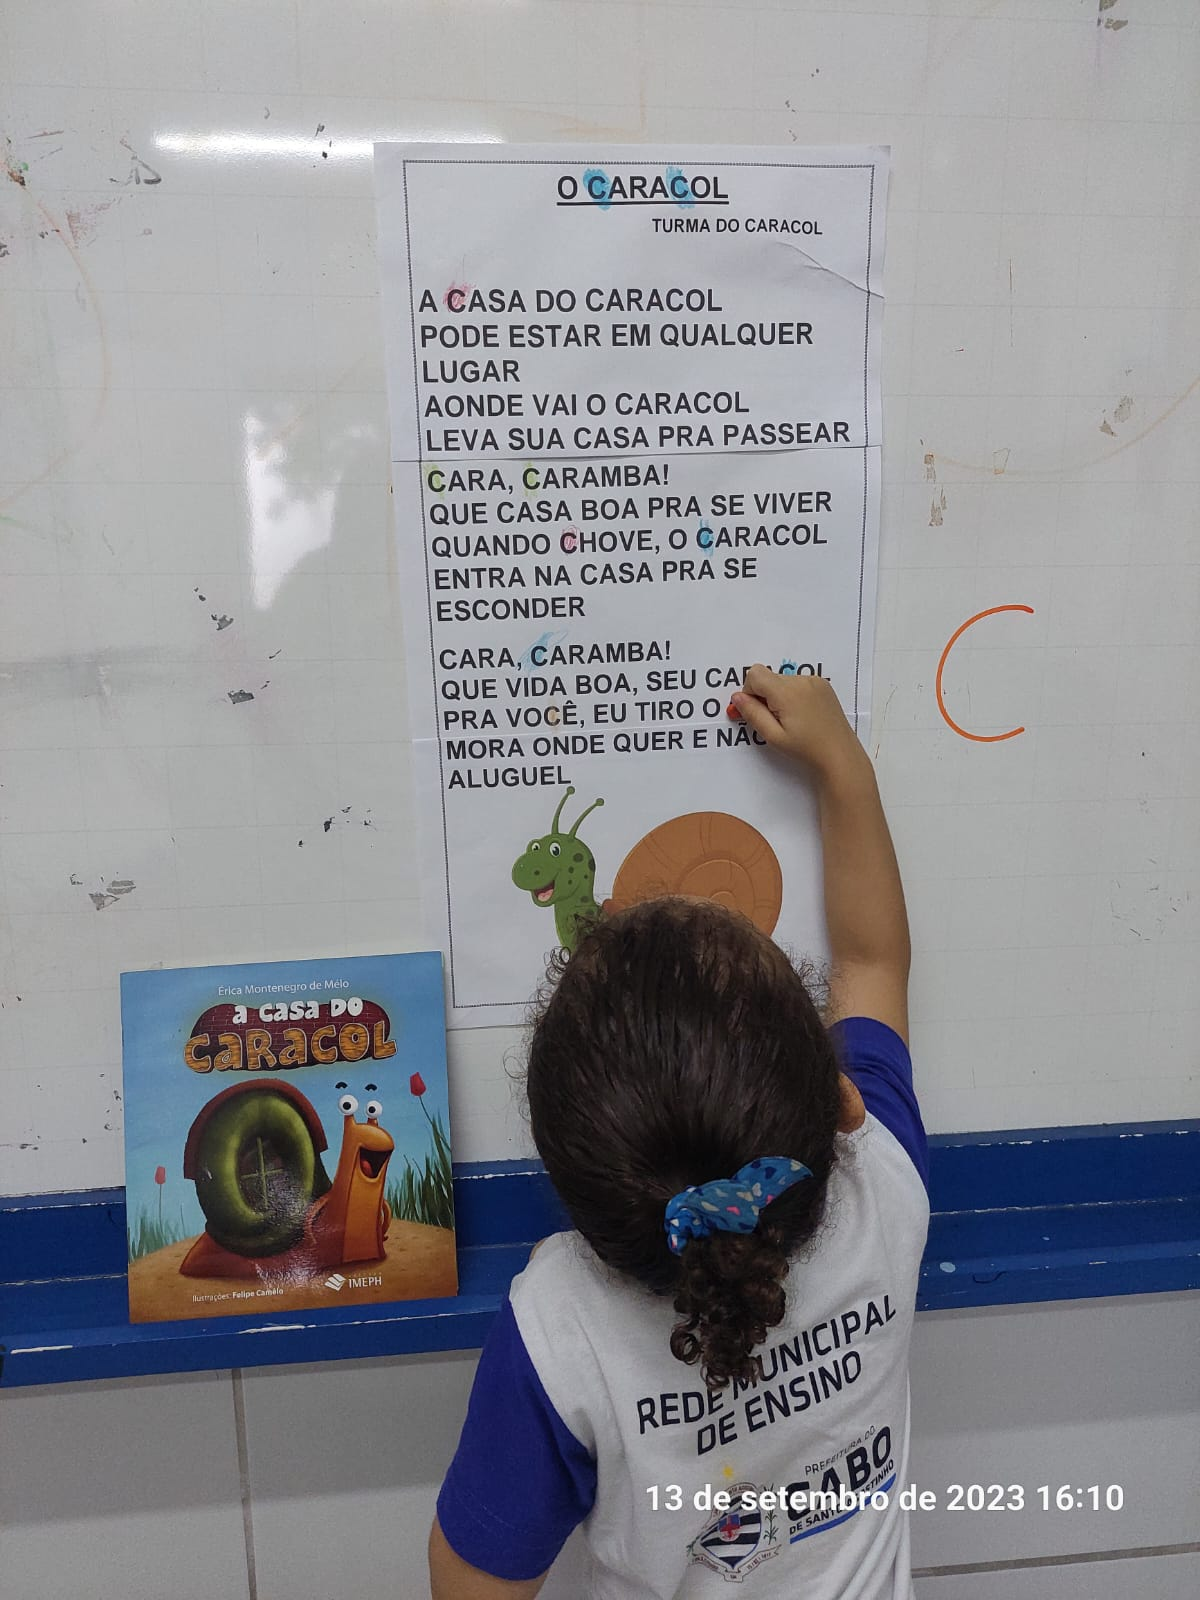 O CARACOL
TURMA DO CARACOL
A CASA DO CARACOL
PODE ESTAR EM QUALQUER
LUGAR
AONDE VAI O CARACOL
LEVA SUA CASA PRA PASSEAR
CARA, CARAMBA!
QUE CASA BOA PRA SE VIVER
QUANDO CHOVE, O CARACOL
ENTRA NA CASA PRA SE
ESCONDER
CARA, CARAMBA!
QUE VIDA BOA, SEU CARACOL
PRA VOCÊ, EU TIRO O
MORA ONDE QUER E NÃO
ALUGUEL
C
Érica Montenegro de Mélo
A CASA DO
CARACOL
Ilustrações: Felipe Camêlo
IMEPH
REDE MUNICIPAL
DE ENSINO
PREFEITURA DO
CABO
DE SANTO AGOSTINHO
13 de setembro de 2023 16:10